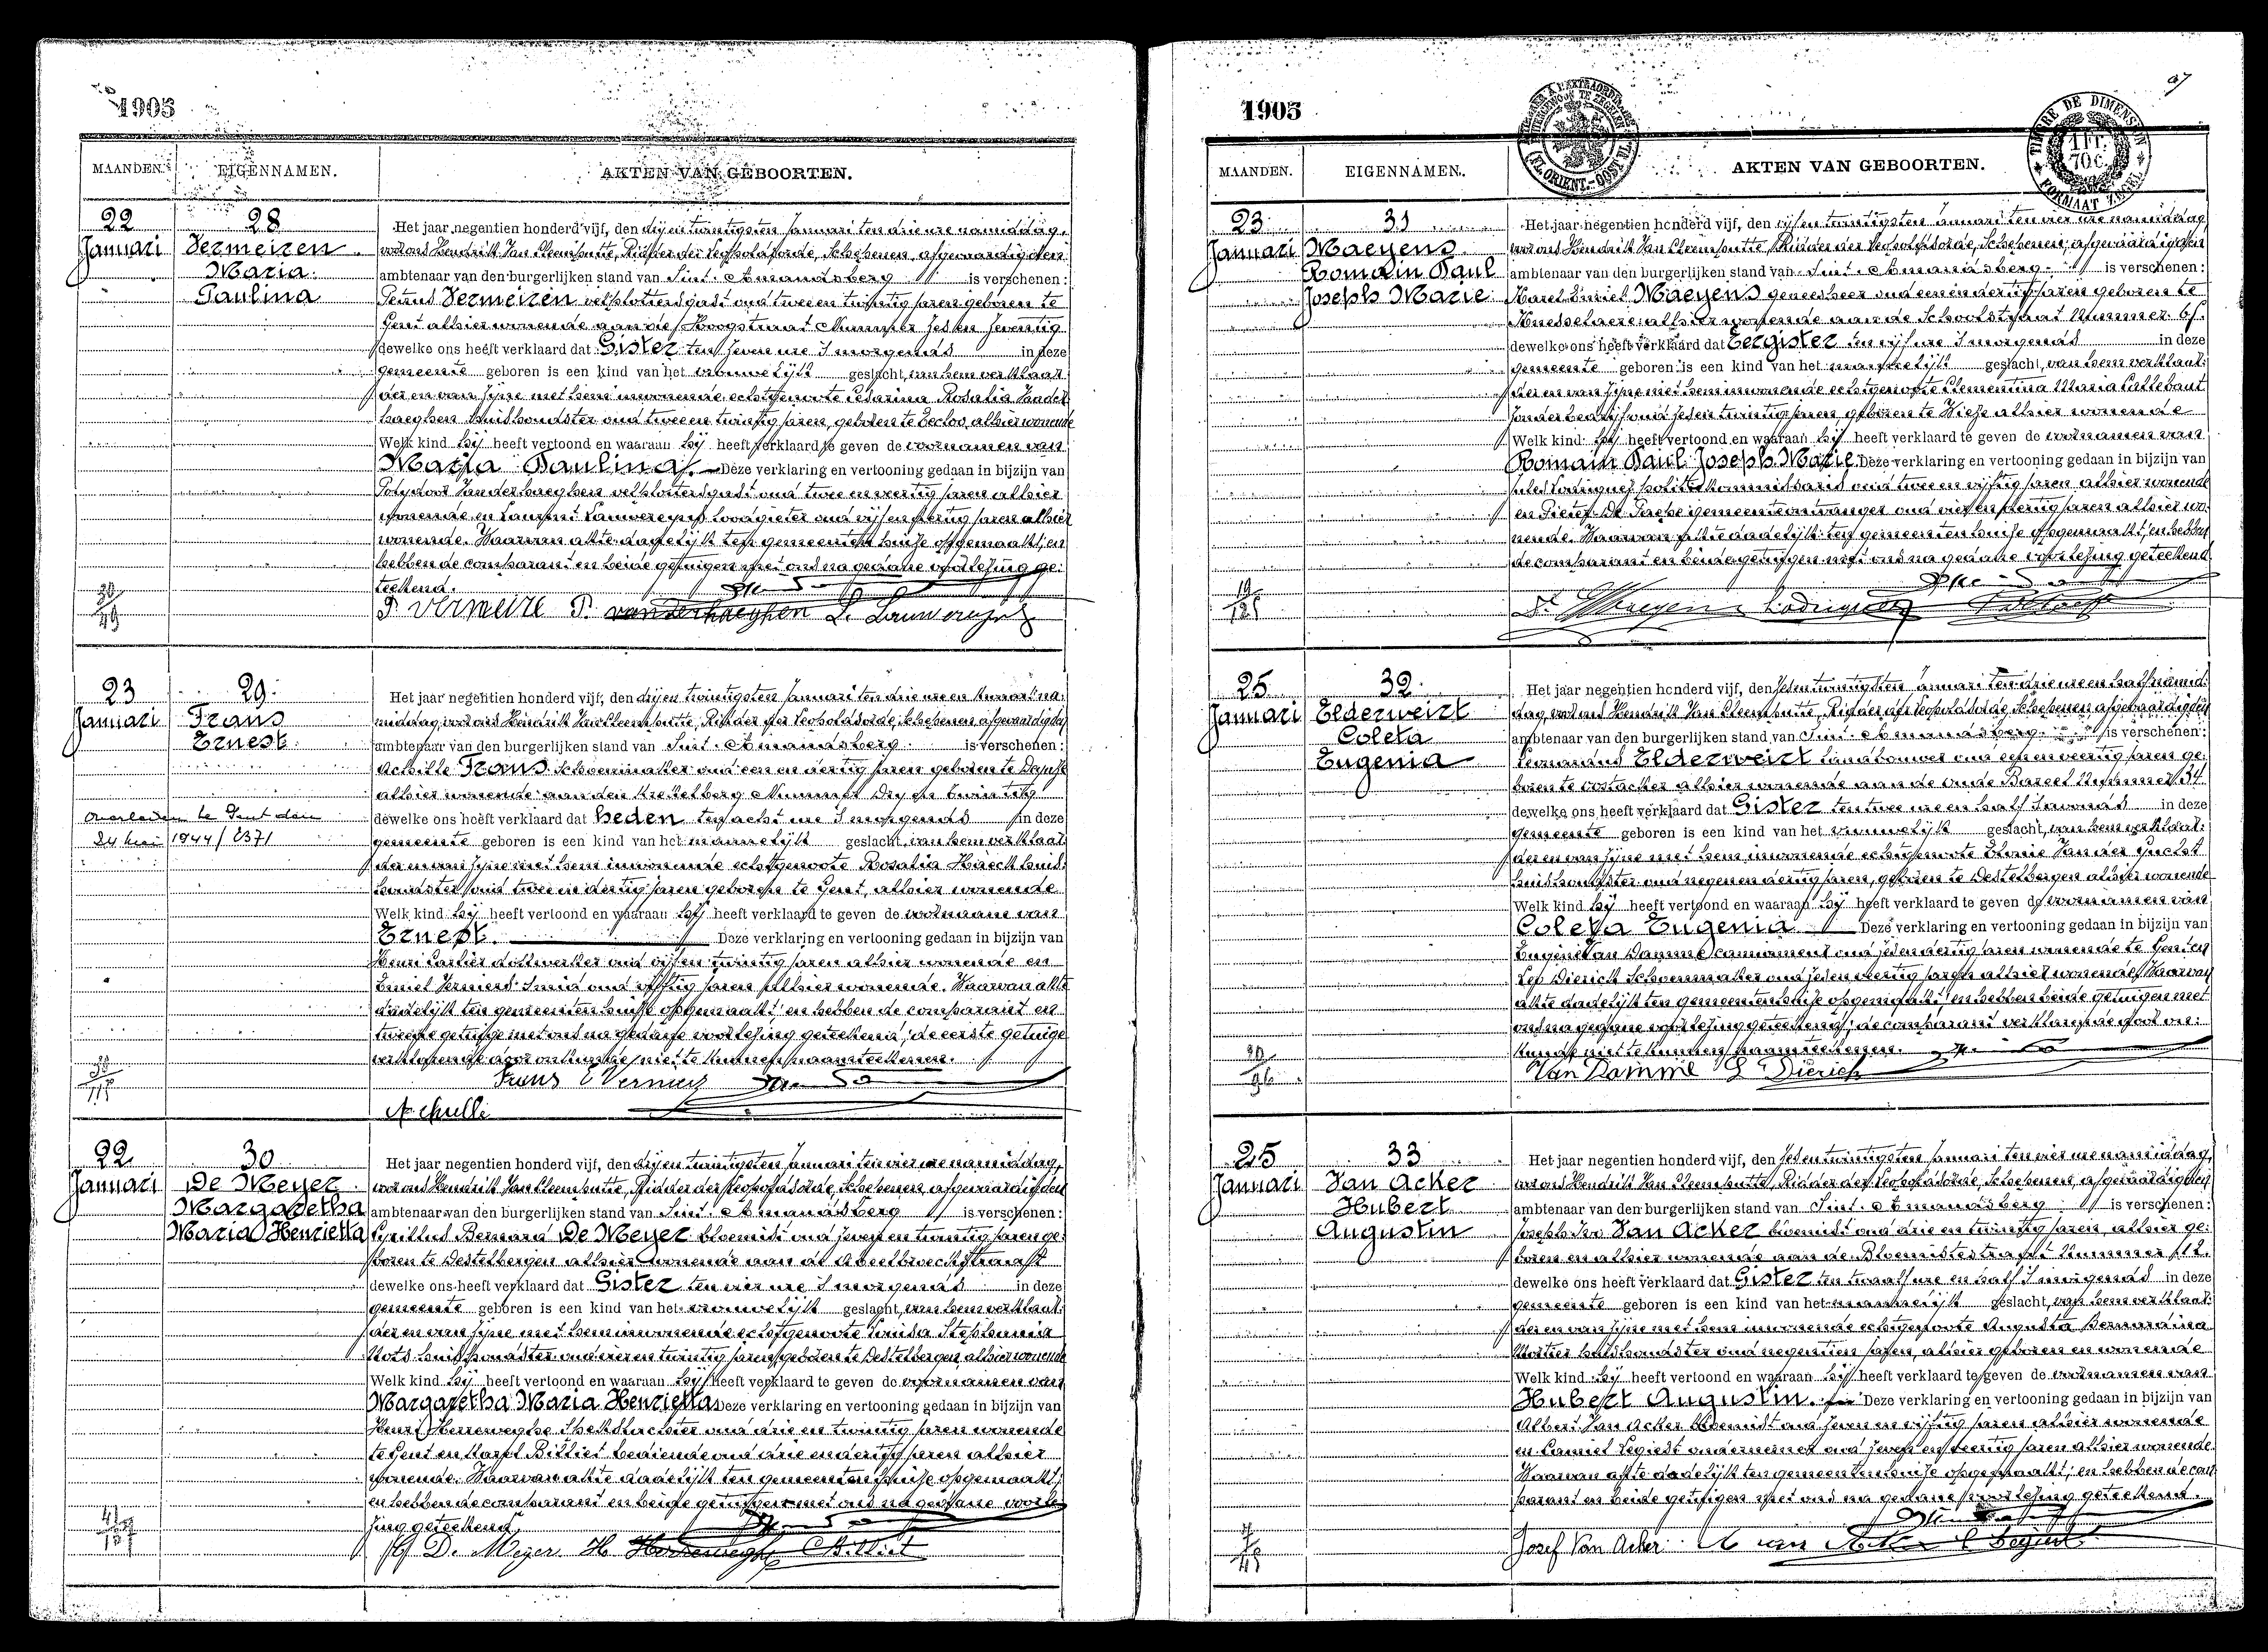 1905
MAANDEN. EIGENNAMEN. AKTEN VAN GEBOORTEN.
22 28 Het jaar negentien honderd vijf, den vijf en twintigsten Januari ten drie ure namiddag,
Januari Vermeiren voor ons Hendrik Van Cleemputte, Ridder der Leopoldsorde, Schepenen, afgevaardigden
Maria ambtenaar van den burgerlijken stand van Sint-Amandsberg is verschenen:
Paulina Petrus Vermeiren velplottersgast oud twee en twintig jaren geboren te
Gent alhier wonende aan de Hoogstraat Nummer zes en zeventig
dewelke ons heeft verklaard dat Gister ten zeven ure 's morgends in deze
gemeente geboren is een kind van het vrouwelijk geslacht, van hem verklaar-
der en van zijne met hem inwonende echtgenoote Cesarina Rosalia Vander-
haeghen huishoudster oud twee en twintig jaren, geboren te Eecloo, alhier wonende
Welk kind hij heeft vertoond en waaraan hij heeft verklaard te geven de voornamen van
Maria Paulina. Deze verklaring en vertooning gedaan in bijzijn van
Polydoor Vanderhaeghen velplottersgast oud twee en veertig jaren alhier
wonende en Laurent Lauwereyns loodgieter oud vijf en veertig jaren alhier
wonende. Waarvan akte dadelijk ten gemeentenhuize opgemaakt; en
hebben de comparant en beide getuigen met ons na gedane voorlezing ge-
teekend.
P Vermeire P. vanderhaeghen L. Lauwereyns
23 29 Het jaar negentien honderd vijf, den vijf en twintigsten Januari ten drie ure en kwaart na-
Januari Frans middag, voor ons Hendrik Van Cleemputte, Ridder der Leopoldsorde, Schepenen afgevaardigden
Ernest ambtenaar van den burgerlijken stand van Sint-Amandsberg is verschenen:
Achille Frans schoenmaker oud een en dertig jaren geboren te Deynze
alhier wonende aan den Krekelberg Nummer Dry en twintig
Overleden te Gent den dewelke ons heeft verklaard dat heden ten acht ure 's morgends in deze
24 Mei 1944 / 2371 gemeente geboren is een kind van het mannelijk geslacht, van hem verklaar-
der en van zijne met hem inwonende echtgenoote Rosalia Haeck huis-
houdster oud twee en dertig jaren geboren te Gent, alhier wonende
Welk kind hij heeft vertoond en waaraan hij heeft verklaard te geven de voornaam van
Ernest. Deze verklaring en vertooning gedaan in bijzijn van
Henri Cartier dokwerker oud vijf en twintig jaren alhier wonende en
Emiel Vermeers Smid oud vijftig jaren alhier wonende. Waarvan akte
dadelijk ten gemeentenhuize opgemaakt; en hebben de comparant en
tweede getuige met ons na gedane voorlezing geteekend; de eerste getuige
verklarende door onkunde niet te kunnen naamteekenen.
Frans E Vermeers
Achille
22 30 Het jaar negentien honderd vijf, den vijf en twintigsten Januari ten vier ure namiddag,
Januari De Meyer voor ons Hendrik Van Cleemputte, Ridder der Leopoldsorde, Schepenen, afgevaardigden
Margaretha ambtenaar van den burgerlijken stand van Sint-Amandsberg is verschenen:
Maria Henrietta Cyrillus Bernard De Meyer bloemist oud zeven en twintig jaren ge-
boren te Destelbergen alhier wonende aan de
dewelke ons heeft verklaard dat Gister ten vier ure 's morgends in deze
gemeente geboren is een kind van het vrouwelijk geslacht, van hem verklaar-
der en van zijne met hem inwonende echtgenoote Louisa Stephania
huishoudster oud vier en twintig jaren geboren te Destelbergen, alhier wonende
Welk kind hij heeft vertoond en waaraan hij heeft verklaard te geven de voornamen van
Margaretha Maria Henrietta Deze verklaring en vertooning gedaan in bijzijn van
Henri Herreweghe oud drie en twintig jaren wonende
te Gent en Karel Billiet bediende oud drie en dertig jaren alhier
wonende. Waarvan akte dadelijk ten gemeentenhuize opgemaakt;
en hebben de comparant en beide getuigen met ons na gedane voorle-
zing geteekend.
D. Meyer H Herreweghe C Billiet
1905
MAANDEN. EIGENNAMEN. AKTEN VAN GEBOORTEN.
TIMBRE DE DIMENSION 1 Fr. 70 c. FORMAAT ZEGEL
23 31 Het jaar negentien honderd vijf, den vijf en twintigsten Januari ten vier ure namiddag
Januari Maeyens voor ons Hendrik Van Cleemputte Ridder der Leopoldsorde, Schepenen, afgevaardigden
Romain Paul ambtenaar van den burgerlijken stand van Sint-Amandsberg is verschenen:
Joseph Marie Karel Emiel Maeyens geneesheer oud een en dertig jaren geboren te
Knesselaere alhier wonende aan de Schoolstraat Nummer
dewelke ons heeft verklaard dat Eergister ten vijf ure 's morgends in deze
gemeente geboren is een kind van het mannelijk geslacht, van hem verklaar-
der en van zijne met hem inwonende echtgenoote Clementina Maria Callebaut
zonder bedrijf oud zes en twintig jaren geboren te Wieze alhier wonende
Welk kind hij heeft vertoond en waaraan hij heeft verklaard te geven de voornamen van
Romain Paul Joseph Marie. Deze verklaring en vertooning gedaan in bijzijn van
Jules Rodriguez politiekommissaris oud twee en vijftig jaren alhier wonende
en Pieter De Paepe gemeenteontvanger oud vier en veertig jaren alhier wo-
nende. Waarvan akte dadelijk ten gemeentenhuize opgemaakt; en hebben
de comparant en beide getuigen met ons na gedane voorlezing geteekend
Dr Maeyens Rodriguez
25 32 Het jaar negentien honderd vijf, den zes en twintigsten Januari ten drie ure en half namid-
Januari Elderweirt dag, voor ons Hendrik Van Cleemputte, Ridder der Leopoldsorde, Schepenen, afgevaardigden
Coleta ambtenaar van den burgerlijken stand van Sint-Amandsberg is verschenen:
Eugenia Fernandus Elderweirt landbouwer oud een en veertig jaren ge-
boren te Oostacker alhier wonende aan de Oude Bareel Nummer 34
dewelke ons heeft verklaard dat Gister ten twee ure en half 's avonds in deze
gemeente geboren is een kind van het vrouwelijk geslacht, van hem verklaar-
der en van zijne met hem inwonende echtgenoote Leonie Van der Gucht
huishoudster oud negen en dertig jaren, geboren te Destelbergen alhier wonende
Welk kind hij heeft vertoond en waaraan hij heeft verklaard te geven de voornamen van
Coleta Eugenia Deze verklaring en vertooning gedaan in bijzijn van
Eugène Van Damme oud zes en dertig jaren wonende te Gent en
Leo Dierick Schoenmaker oud zes en veertig jaren alhier wonende. Waarvan
akte dadelijk ten gemeentenhuize opgemaakt; en hebben beide getuigen met
ons na gedane voorlezing geteekend; de comparant verklarende door on-
kunde niet te kunnen naamteekenen.
Van Damme Dierick
25 33 Het jaar negentien honderd vijf, den zes en twintigsten Januari ten vier ure namiddag,
Januari Van Acker voor ons Hendrik Van Cleemputte, Ridder der Leopoldsorde, Schepenen, afgevaardigden
Hubert ambtenaar van den burgerlijken stand van Sint-Amandsberg is verschenen:
Augustin Joseph Van Acker bloemist oud drie en twintig jaren, alhier ge-
boren en alhier wonende aan de Bloemistestraat Nummer 12.
dewelke ons heeft verklaard dat Gister ten twaalf ure en half 's morgends in deze
gemeente geboren is een kind van het mannelijk geslacht, van hem verklaar-
der en van zijne met hem inwonende echtgenoote Augusta Bernardina
Mortier huishoudster oud negentien jaren, alhier geboren en wonende
Welk kind hij heeft vertoond en waaraan hij heeft verklaard te geven de voornamen van
Hubert Augustin. Deze verklaring en vertooning gedaan in bijzijn van
Albert Van Acker bloemist oud zeven en vijftig jaren alhier wonende
en Camiel Segiert ondernemer oud zeven en veertig jaren alhier wonende.
Waarvan akte dadelijk ten gemeentenhuize opgemaakt; en hebben de com-
parant en beide getuigen met ons na gedane voorlezing geteekend.
Josef Van Acker A van Acker